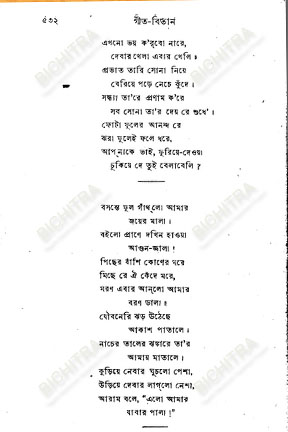 ৫৩২
গীত-বিতান
এখনো ভয় ক'রবো নারে,
দেবার খেলা এবার খেলি॥
প্রভাত তারি সোনা নিয়ে
বেরিয়ে পড়ে নেচে কুঁদে।
সন্ধ্যা তা'রে প্রণাম ক'রে
সব সোনা তা'র দেয় রে শুধে'।
ফোটা ফুলের আনন্দ রে
ঝরা ফুলেই ফলে ধরে,
আপনাকে ভাই, ফুরিয়ে-দেওয়া
চুকিয়ে দে তুই বেলাবেলি?
বসন্তে ফুল গাঁথ্‌লো আমার
জয়ের মালা।
বইলো প্রাণে দখিন হাওয়া
আগুন-জ্বালা।
পিছের বাঁশি কোণের ঘরে
মিছে রে ঐ কেঁদে মরে,
মরণ এবার আন্‌লো আমার
বরণ ডালা॥
যৌবনেরি ঝড় উঠেছে
আকাশ পাতালে।
নাচের তালের ঝঙ্কারে তা'র
আমায় মাতালে।
কুড়িয়ে নেবার ঘুচলো পেশা,
উড়িয়ে দেবার লাগ্‌লো নেশা,
আরাম বলে, "এলো আমার
যাবার পালা!"
BICHITRA
BICHITRA
BICHITRA
BICHITRA
BICHITRA
BICHITRA